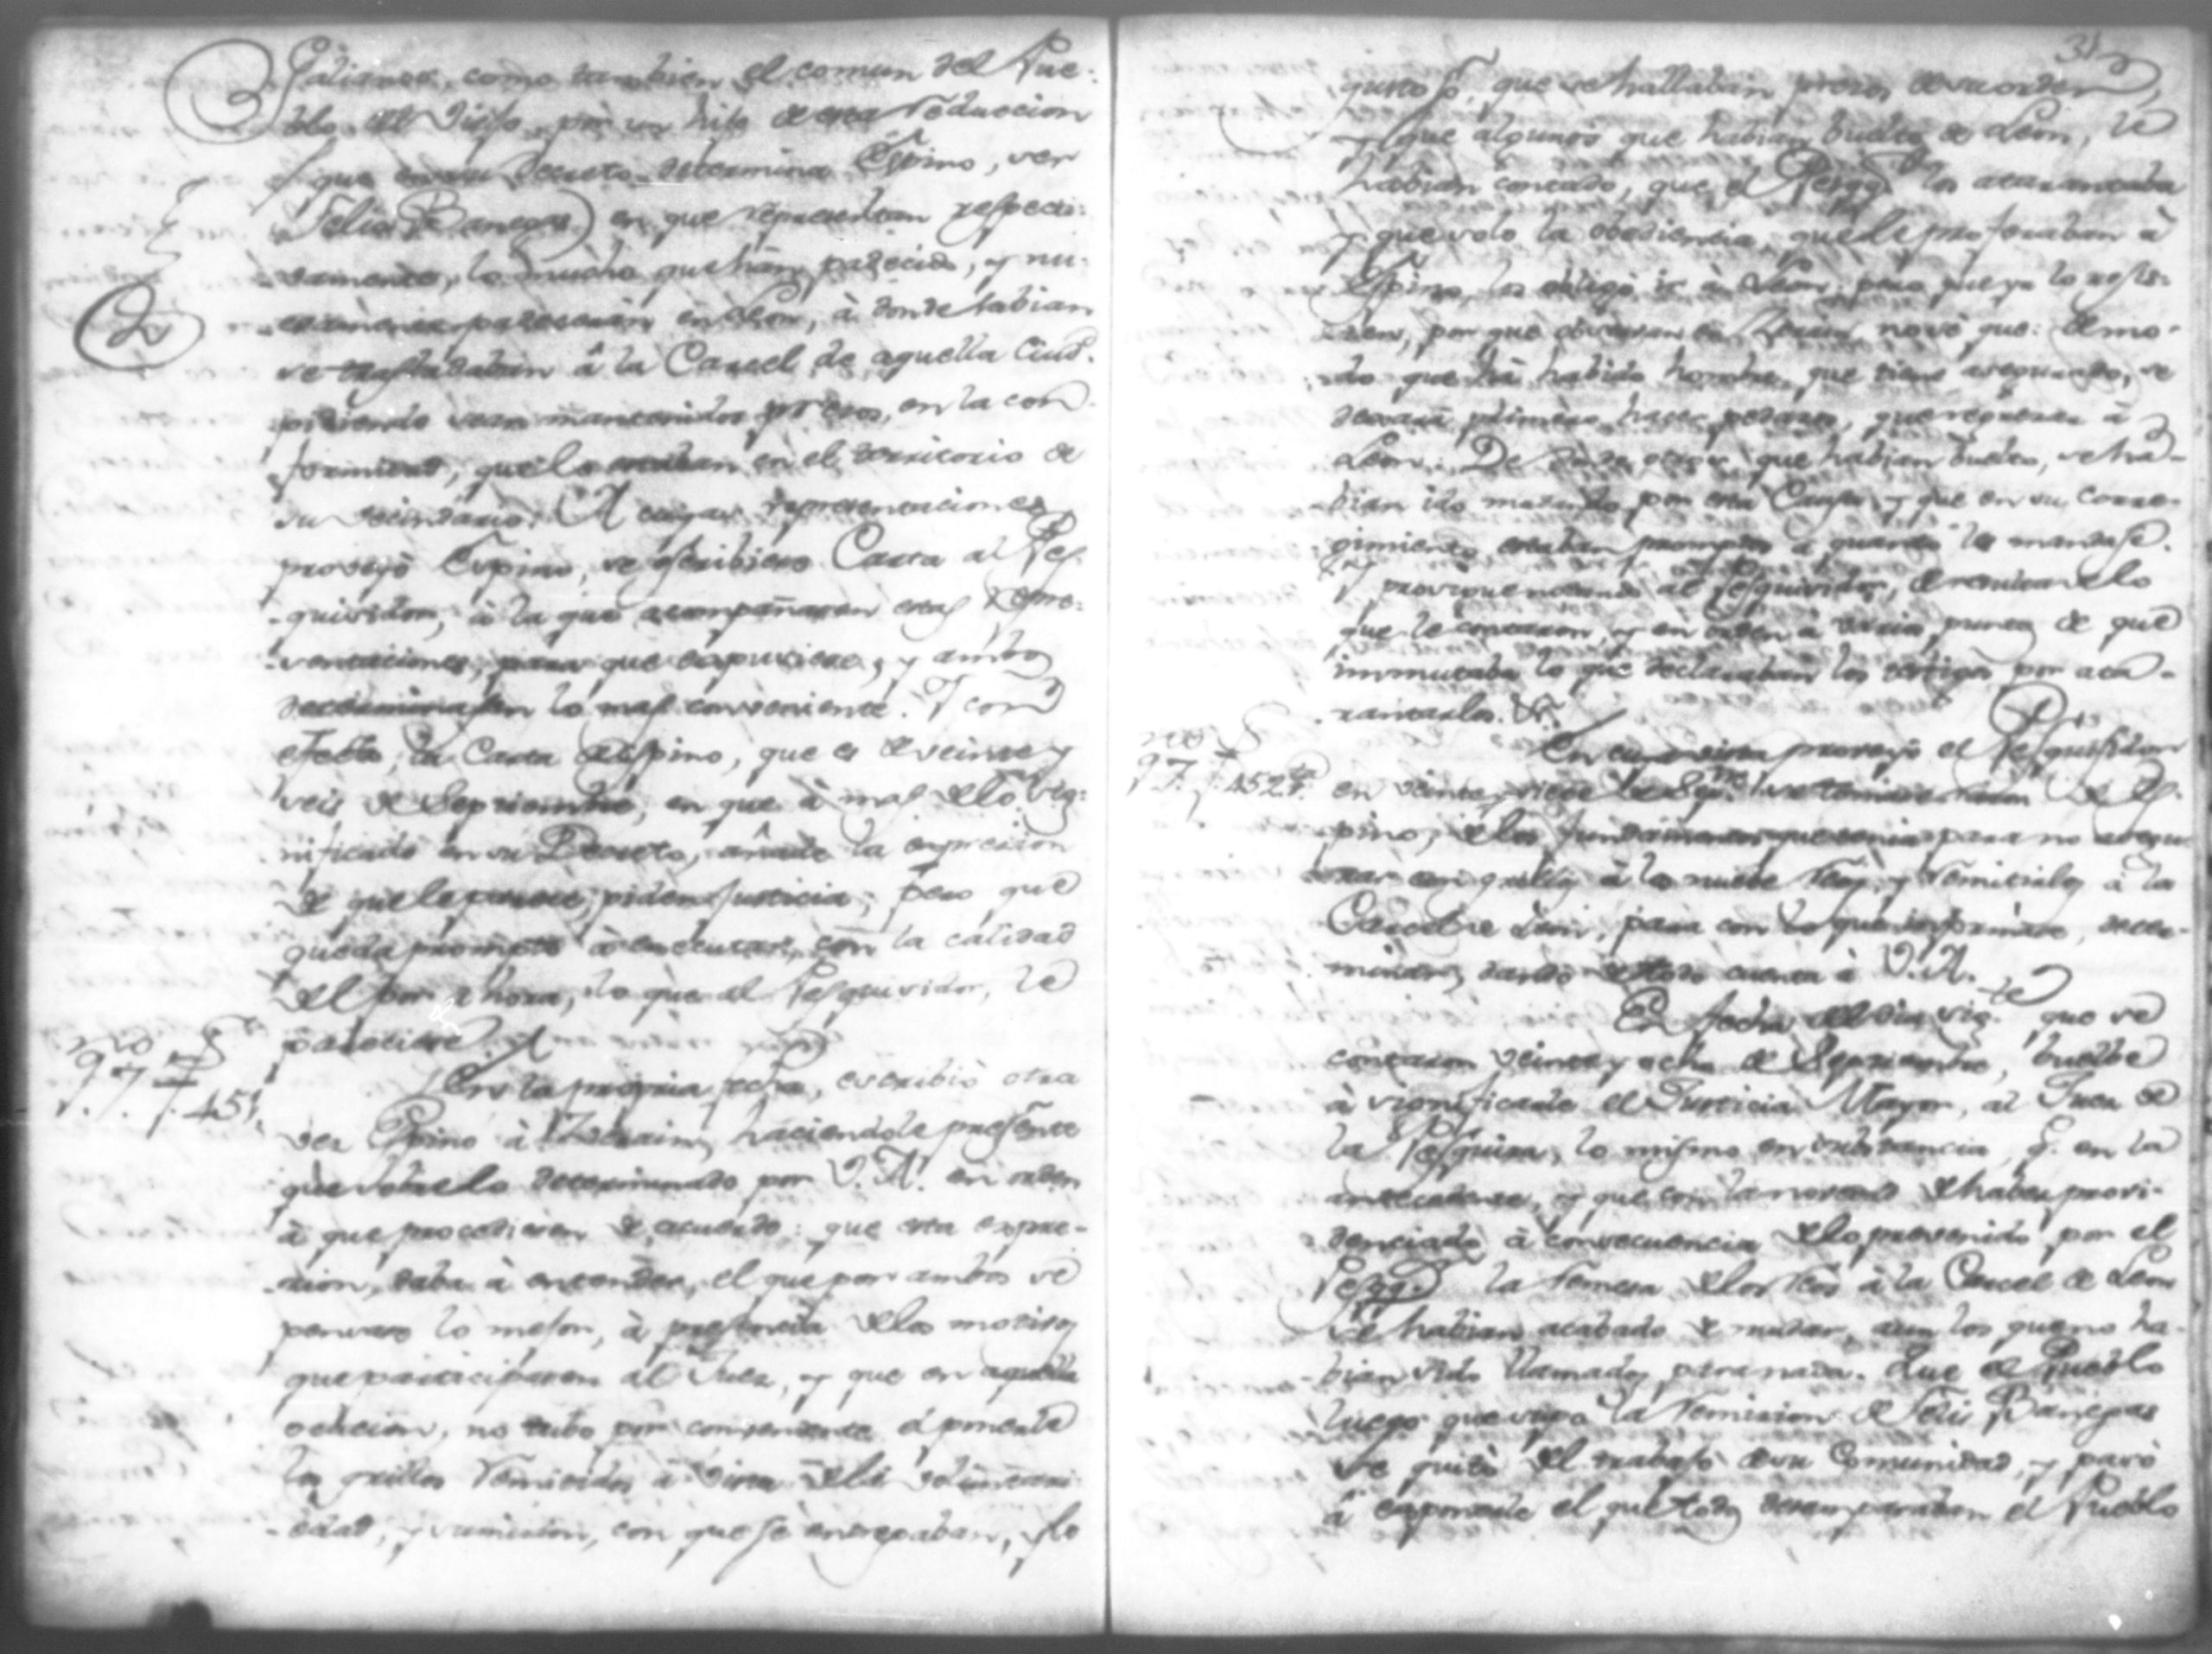 Galianos, como tambien el comun del Pue-
blo del Viejo, por un hijo de esta Reduccion
(que en su Decreto determina Espino, ser
Felis Banegas) en que representan respecti-
vamente, lo mucho que han padecido, y nu-
padeceràn en Leon, à donde habian
se trasladaban â la Carcel de aquella Ciud.
pidiendo sean mantenidos presos, en la con-
formidad, que lo estaban en el territorio de
su vecindario. A cuyas representaciones
proveyò Espino, se escribiese Carta al Pes-
quisidor, à la que acompañasen estas Repre-
sentaciones, para que expusiese, y ambos
determinasen lo mas conveniente. Y con
efecto, la Carta de Espino, que es de veinte y
seis de Septiembre, en que à mas de lo sig-
nificado en su Decreto, añade la expresion
de que le parece, piden Justicia; pero que
queda prompto à executar, con la calidad
del por ahora, lo que al Pesquisidor, le
pareciere.
97. f. 451.
En la propria fecha, escribiò otra
vez Espino à haciendole presente
que sobre lo determinado por V.A. en orden
à que procediesen de acuerdo: que esta expre-
sion, daba à entender, el que por ambos se
pensase lo mejor, à presencia de los motivos
que participasen al Juez, y que en aquella
ocacion, no tubo por conveniente el ponerle
los grillos remitidos à vista de la voluntari-
edad, y sumision, con que se entregaban, y lo
gustoso, que se hallaban presos de su orden,
y que algunos que habian buelto de Leon, le
habian contado, que el Pesqq.or los atarantaba
y que solo la obediencia, que le profesaban à
Espino, los obligò ir à Leon; pero que ya lo resis-
ten, por que no sè que: de mo-
do que hà habido hombre, que tiene asegurado, se
dexarà primero hacer pedazos, que regresar à
Leon. De donde otros que habian buelto, se ha-
bian ido matando por esta Causa, y que en su Corre-
gimiento estaban promptos à quanto les mandase.
Y al Pesquisidor, de
que le contaron, y en orden à varios puntos de que
inmutaba lo que declaraban los testigos por ata-
rantarlos. V.
97. f. 452.
En cuya vista proveyò el Pesquisidor
en veinte y siete de Sep.re de Es-
pino, de los fundamentos que tenia para no asegu-
rar con grillos à los nueve Reos, y remitirlos à la
Carcel de Leon, para con lo que informàre, deter-
minar, dando de todo cuenta à V.A.
En fecha del dia sig.te que se
contaron veinte y ocho de Septiembre, buelbe
à significarle el Justicia Mayor, al Juez de
la Pesquisa, lo mismo en substancia q. en la
antecedente, y que con la novedad de haber provi-
denciado à consecuencia de lo prevenido por el
Pesqq.or la remesa de los Reos à la Carcel de Leon
se habian acabado de mudar, aun los que no ha-
bian sido llamados para nada. Que el Pueblo
luego que supo la remision de Felis Banegas
se quitò del trabajo de su Comunidad, y pasò
à exponerle el que todos desamparaban el Pueblo